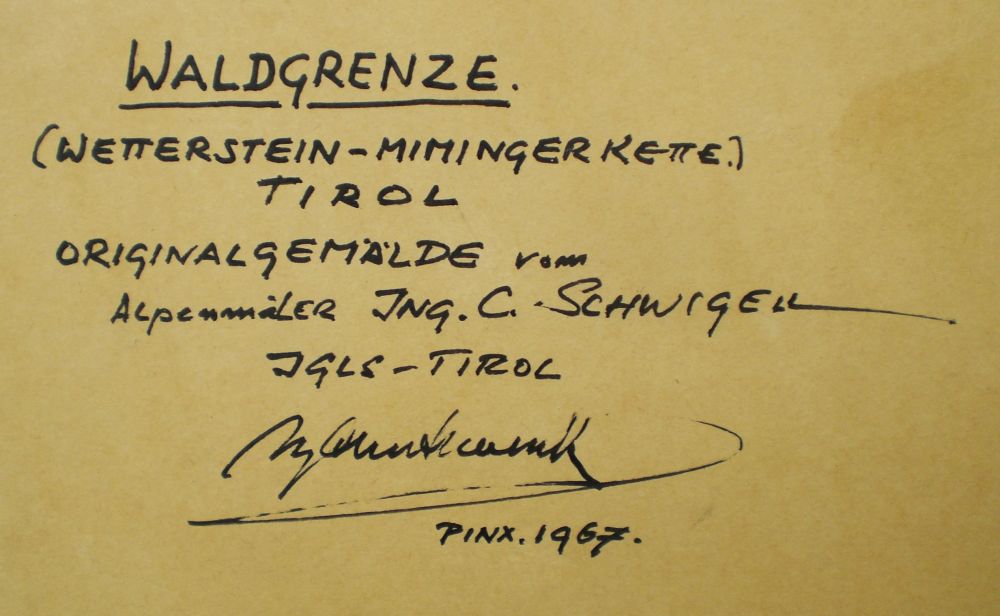 WALDGRENZE.
(WETTERSTEIN-MIMINGERKETTE.)
TIROL
ORIGINALGEMÄLDE vom
Alpenmäler ING. C. SCHWIGELL
IGLS-TIROL
PINX. 1967.